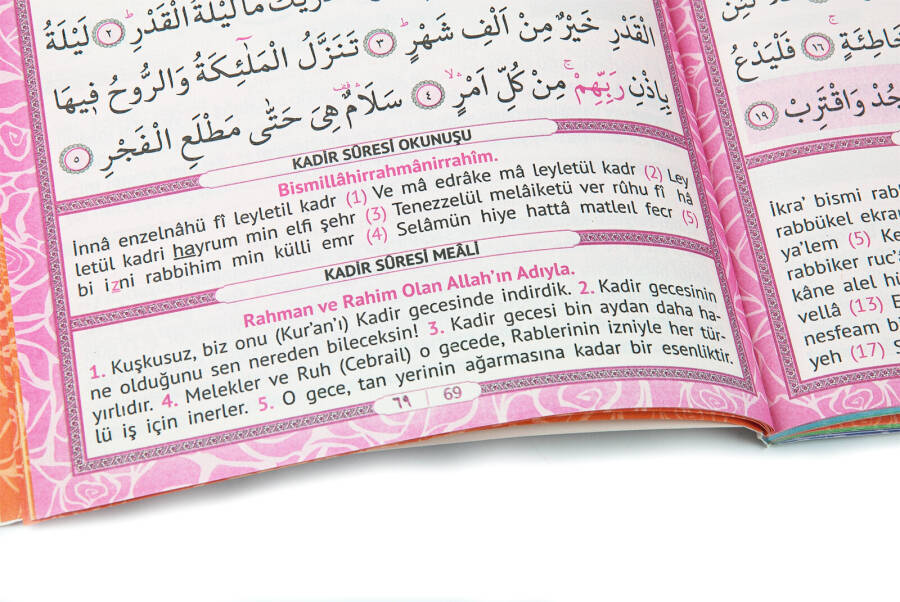 الْقَدْرِ ﴿٢﴾ لَيْلَةُ
الْقَدْرِ خَيْرٌ مِنْ اَلْفِ شَهْرٍ ﴿٣﴾ تَنَزَّلُ الْمَلٰٓئِكَةُ وَالرُّوحُ فٖيهَا
بِاِذْنِ رَبِّهِمْ مِنْ كُلِّ اَمْرٍ ﴿٤﴾ سَلَامٌ هِيَ حَتّٰى مَطْلَعِ الْفَجْرِ ﴿٥﴾
KADİR SÛRESİ OKUNUŞU
Bismillâhirrahmânirrahîm.
İnnâ enzelnâhü fî leyletil kadr (1) Ve mâ edrâke mâ leyletül kadr (2) Ley
letül kadri hayrum min elfi şehr (3) Tenezzelül melâiketü ver rûhu fî hâ
bi izni rabbihim min külli emr (4) Selâmün hiye hattâ matleıl fecr (5)
KADİR SÛRESİ MEÂLİ
Rahman ve Rahim Olan Allah'ın Adıyla.
1. Kuşkusuz, biz onu (Kur'an'ı) Kadir gecesinde indirdik. 2. Kadir gecesinin
ne olduğunu sen nereden bileceksin! 3. Kadir gecesi bin aydan daha ha-
yırlıdır. 4. Melekler ve Ruh (Cebrail) o gecede, Rablerinin izniyle her tür-
lü iş için inerler. 5. O gece, tan yerinin ağarmasına kadar bir esenliktir.
٦٩ | 69
﴿١٦﴾ فَلْيَدْعُ
وَاقْتَرِبْ ﴿١٩﴾
İkra' bismi rab
rabbükel ekra
ya'lem (5) Ke
rabbiker ruc'
kâne alel hü
vellâ (13) E
nesfeam bi
yeh (17) S